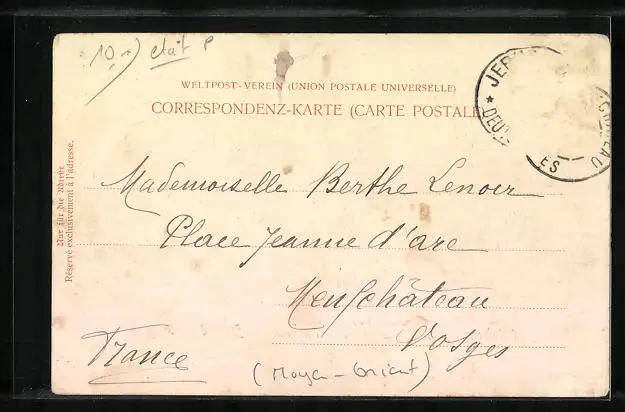 10,-) état P
WELTPOST-VEREIN (UNION POSTALE UNIVERSELLE)
CORRESPONDENZ-KARTE (CARTE POSTALE
Nur für die Adresse
Réservé exclusivement à l'adresse.
JER
* DEU
ES
Mademoiselle Berthe Lenoir
Place Jeanne d'arc
Neufchâteau
Vosges
France
(Moyen-Orient)